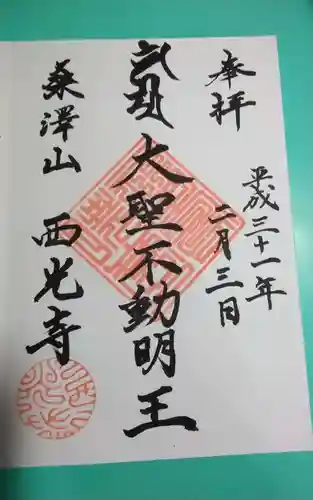 奉拝
平成三十一年
二月三日
大聖不動明王
桑澤山
西光寺